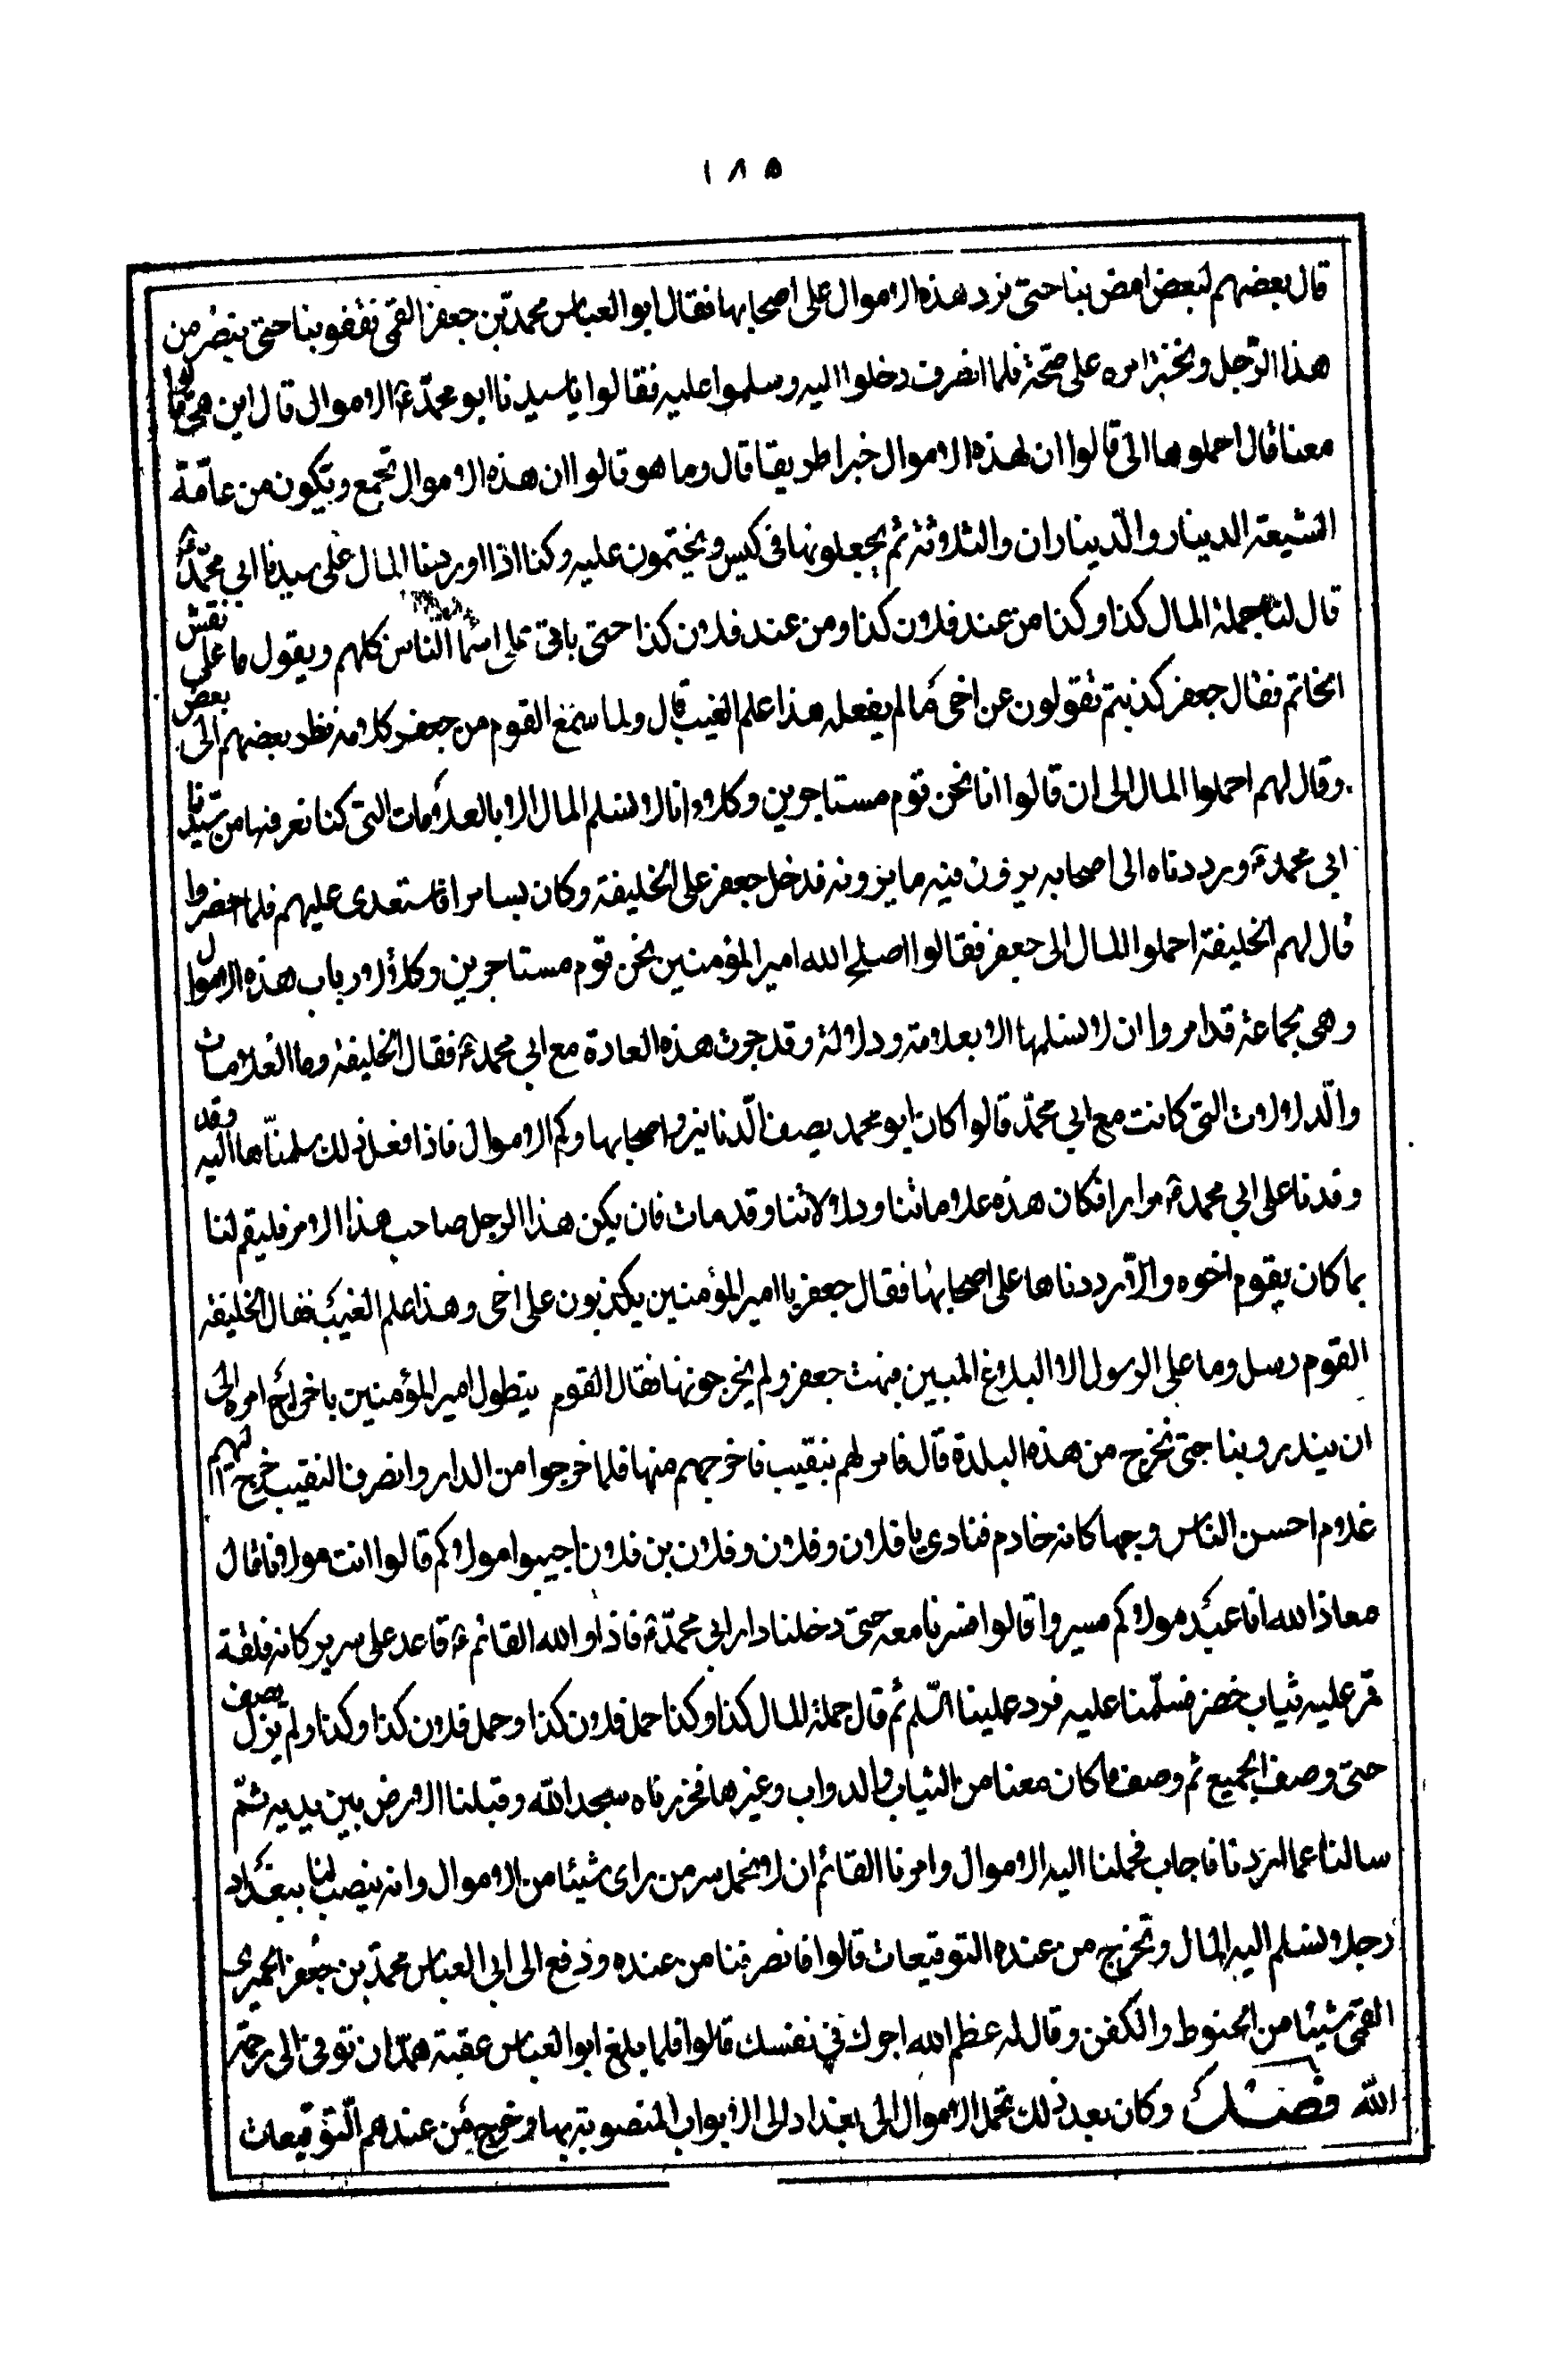 ١٨۵
قال بعضهم لبعض امض بنا حتى نرد هذه الاموال على اصحابها فقال ابو العباس محمد بن جعفر القمى نقفو بنا حتى ينصرف
هذا الرّجل ونختبر امره على صحّة فلما انصرف دخلوا اليه وسلموا عليه فقالوا يا سيدنا ابو محمّد ع الاموال قال اين هى قالوا
معنا قال احملوها الى قالوا ان لهذه الاموال خبرا طريقا قال وما هو قالوا ان هذه الاموال تجمع وتكون من عامّة
الشيعة الدينار والدّيناران والثلاثة ثم يجعلونها فى كيس ويختمون عليه وكنا اذا اوردنا المال على سيدنا ابى محمّد ع
قال لنا جملة المال كذا وكذا من عند فلان كذا ومن عند فلان كذا حتى ياتى على اسماء الناس كلهم ويقول ما على نقش
الخاتم فقال جعفر كذبتم تقولون عن اخى ما لم يفعله هذا علم الغيب قال ولما سمع القوم من جعفر كلامه نظر بعضهم الى بعض
وقال لهم احملوا المال الى ان قالوا انا نحن قوم مستاجرين وكلاء وانا لا نسلم المال الا بالعلامات التى كنا نعرفها من سيدنا
ابى محمد ع ورددناه الى اصحابه يرون فيه ما يرونه فدخل جعفر على الخليفة وكان بسامرا فاستعدى عليهم فلما حضروا
قال لهم الخليفة احملوا المال الى جعفر فقالوا اصلح الله امير المؤمنين نحن قوم مستاجرين وكلاء لارباب هذه الاموال
وهى لجماعة قد امروا ان لا نسلمها الا بعلامة ودلالة وقد جرت هذه العادة مع ابى محمد ع فقال الخليفة وما العلامات
والّدلالات التى كانت مع ابى محمّد قالوا كان ابو محمد يصف الّدنانير واصحابها وكم الاموال فاذا فعل ذلك سلمنّاها اليه وقد
وفدنا على ابى محمد ع مرارا فكان هذه علاماتنا ودلالاتنا وقد مات فان يكن هذا الرجل صاحب هذا الامر فليقم لنا
بما كان يقوم اخوه والّا رددناها على اصحابها فقال جعفر يا امير المؤمنين يكذبون على اخى وهذا علم الغيب فقال الخليفة
القوم رسل وما على الرسول الا البلاغ المبين فبهت جعفر ولم يخرجونها فقال القوم يتطول امير المؤمنين باخراج امره الى
ان يبدروبنا حتى نخرج من هذه البلدة قال فامر لهم بنقيب فاخرجهم منها فلما خرجوا من الدار وانصرف النقيب خرج اليهم
غلام احسن الناس وجها كانه خادم فنادى يا فلان وفلان وفلان بن فلان اجيبوا مولاكم قالوا انت مولانا قال
معاذ الله انا عبد مولاكم مسيروا قالوا فسرنا معه حتى دخلنا دار ابى محمّد ع فاذا والله القائم ع قاعد على سرير كانه فلقة
قمر عليه ثياب خضر فسلّمنا عليه فرد علينا السّلم ثم قال جملة المال كذا وكذا حمل فلان كذا وحمل فلان كذا وكذا ولم يزل يصف
حتى وصف الجميع ثم وصف ما كان معنا من الثياب والدواب وغيرها فخررناه سجد الله وقبلنا الارض بين يديه ثمّ
سالنا عما اردنا فاجاب فحملنا اليه الاموال وامرنا القائم ان لا نحمل سر من راى شيئا من الاموال وانه ينصب لنا ببغداد
رجلا نسلم اليه المال وتخرج من عنده التوقيعات قالوا فانصرفنا من عنده ودفع الى ابى العباس محمد بن جعفر الحميرى
القمى شيئا من الحنوط والكفن وقال له عظم الله اجرك فى نفسك قالوا فلما بلغ ابو العباس عقبة همدان توفى الى رحمة
الله فصل وكان بعد ذلك تحمل الاموال الى بغداد الى الابواب المنصوبة بها وخرج من عندهم التّوقيعات